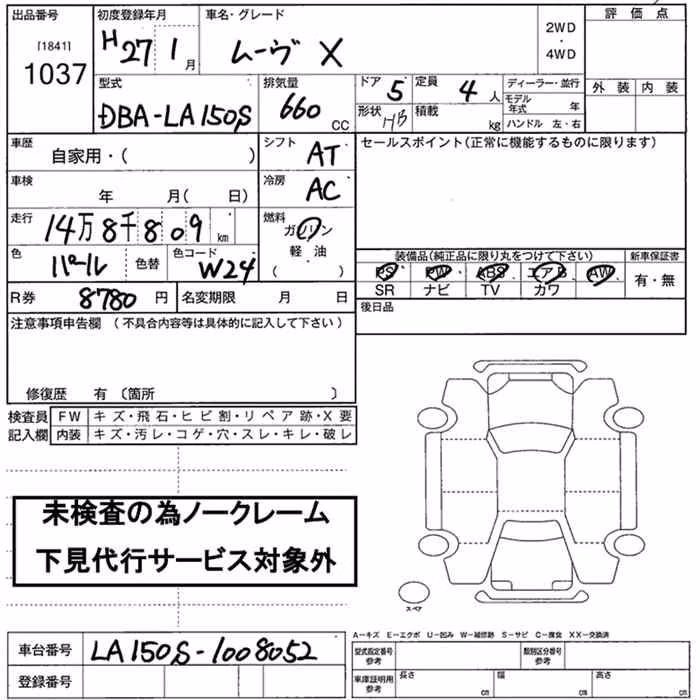 出品番号 初度登録年月 車名・グレード 評価点
[1841] H27 1月 ムーヴ X 2WD
・
1037 4WD
型式 排気量 ドア 5 定員 4人 ディーラー・並行 外装 内装
DBA-LA150S 660 CC 形状 HB 積載 kg モデル年式 年
ハンドル 左・右
車歴 シフト AT セールスポイント(正常に機能するものに限ります)
自家用・( )
車検 冷房 AC
年 月( 日)
走行 14万8千809km 燃料 ガソリン
色 パール 色替 色コード W24 軽・油 装備品(純正品に限り丸をつけて下さい) 新車保証書
( ) PS PW ABS エアB AW 有・無
R券 8780円 名変期限 月 日 SR ナビ TV カワ
後日品
注意事項申告欄 (不具合内容等は具体的に記入して下さい)
修復歴 有 (箇所 )
検査員 FW キズ・飛石・ヒビ割・リペア跡・X要
記入欄 内装 キズ・汚レ・コゲ・穴・スレ・キレ・破レ
未検査の為ノークレーム
下見代行サービス対象外
スペア
A-キズ E-エクボ U-凹み W-補修跡 S-サビ C-腐食 XX-交換済
車台番号 LA150S-1008052 型式指定番号 参考 類別区分番号 参考
登録番号 車庫証明用 参考 長さ cm 幅 cm 高さ cm